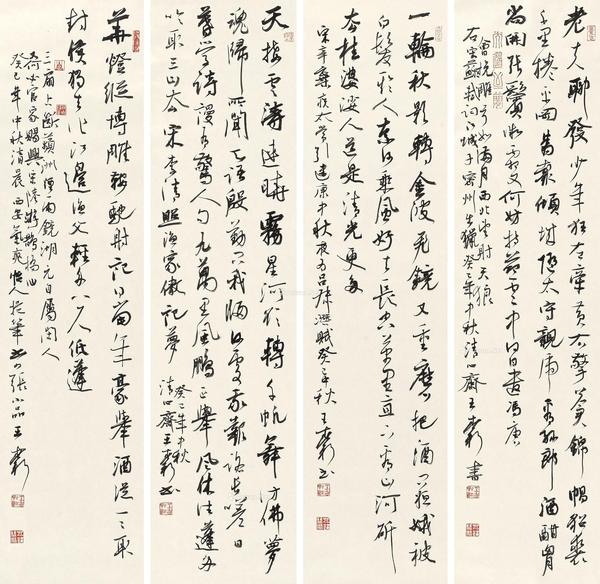 老夫聊發少年狂左牽黃右擎蒼錦帽貂裘
千里捲平岡爲報傾城隨太守親射虎看孫郎酒酣胸
尚開張鬢微霜又何妨持節雲中何日遣馮唐
會挽雕弓如滿月西北望射天狼
右宋蘇軾詞江城子密州出獵癸巳年中秋清心齋王霖書
一輪秋影轉金波飛鏡又重磨把酒問姮娥被
白髮欺人奈何乘風好去長空萬里直下看山河斫
去桂婆娑人道是清光更多
宋辛棄疾太常引建康中秋夜爲呂叔潛賦癸巳年秋王霖書
天接雲濤連曉霧星河欲轉千帆舞仿佛夢
魂歸帝所聞天語殷勤問我歸何處我報路長嗟日
暮學詩謾有驚人句九萬里風鵬正舉風休住蓬舟
吹取三山去宋李清照漁家傲記夢
癸巳年中秋
清心齋王霖書
華燈縱博雕鞍馳射誰記當年豪舉酒徒一一取
封侯獨去作江邊漁父輕舟八尺低篷
三扇占斷蘋洲煙雨鏡湖元自屬閒人
又何必官家賜與宋陸游鵲橋仙
癸巳年中秋清晨西安氣爽怡人小品王霖